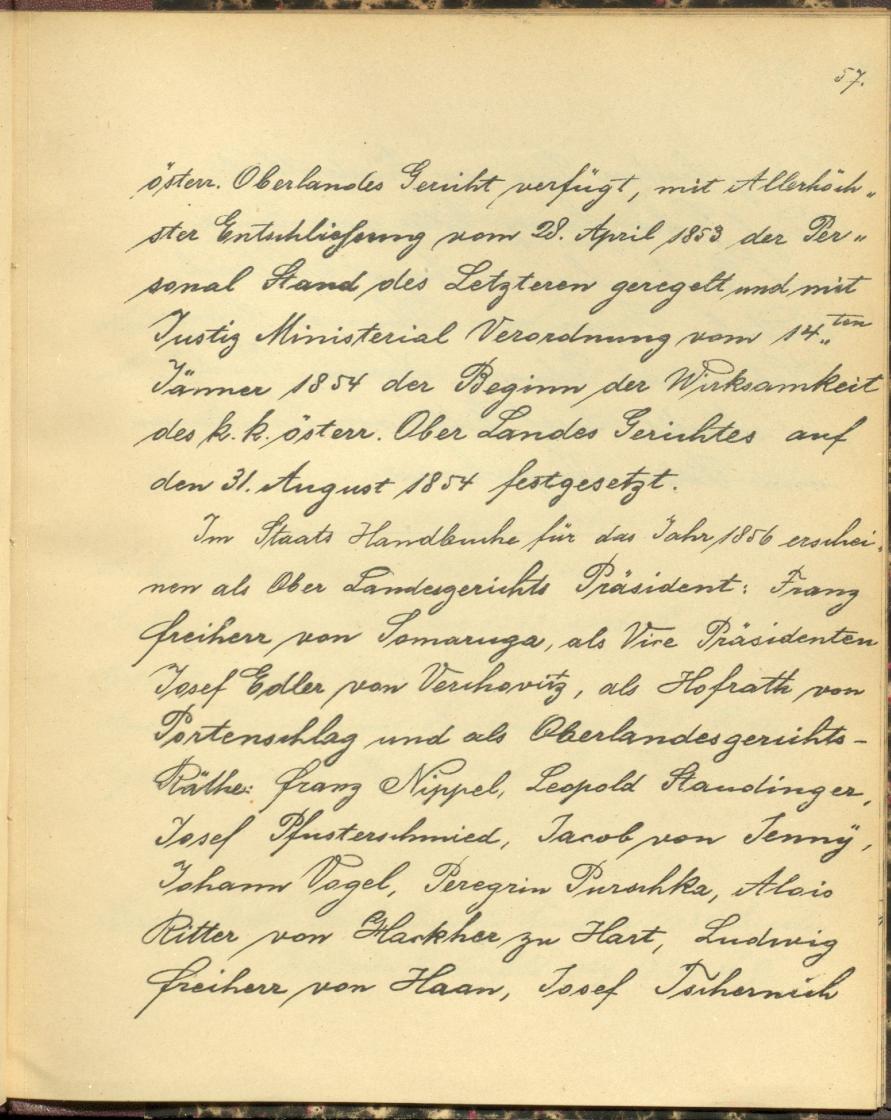 57.
österr. Oberlandes Gericht verfügt, mit Allerhöch„
ster Entschließung vom 28. April 1853 der Per„
sonal Stand des Letzteren geregelt und mit
Justiz Ministerial Verordnung vom 14.ten
Jänner 1854 der Beginn der Wirksamkeit
des k. k. österr. Ober Landes Gerichtes auf
den 31. August 1854 festgesetzt.
Im Staats Handbuche für das Jahr 1856 erschei„
nen als Ober Landesgerichts Präsident: Franz
Freiherr von Somaruga, als Vice Präsidenten
Josef Edler von Verhovitz, als Hofrath von
Portenschlag und als Oberlandesgerichts-
Räthe: Franz Nippel, Leopold Staudinger,
Josef Pfusterschmied, Jacob von Jenny,
Johann Vogel, Peregrin Purschka, Alois
Ritter von Hackher zu Hart, Ludwig
Freiherr von Haan, Josef Tschernich